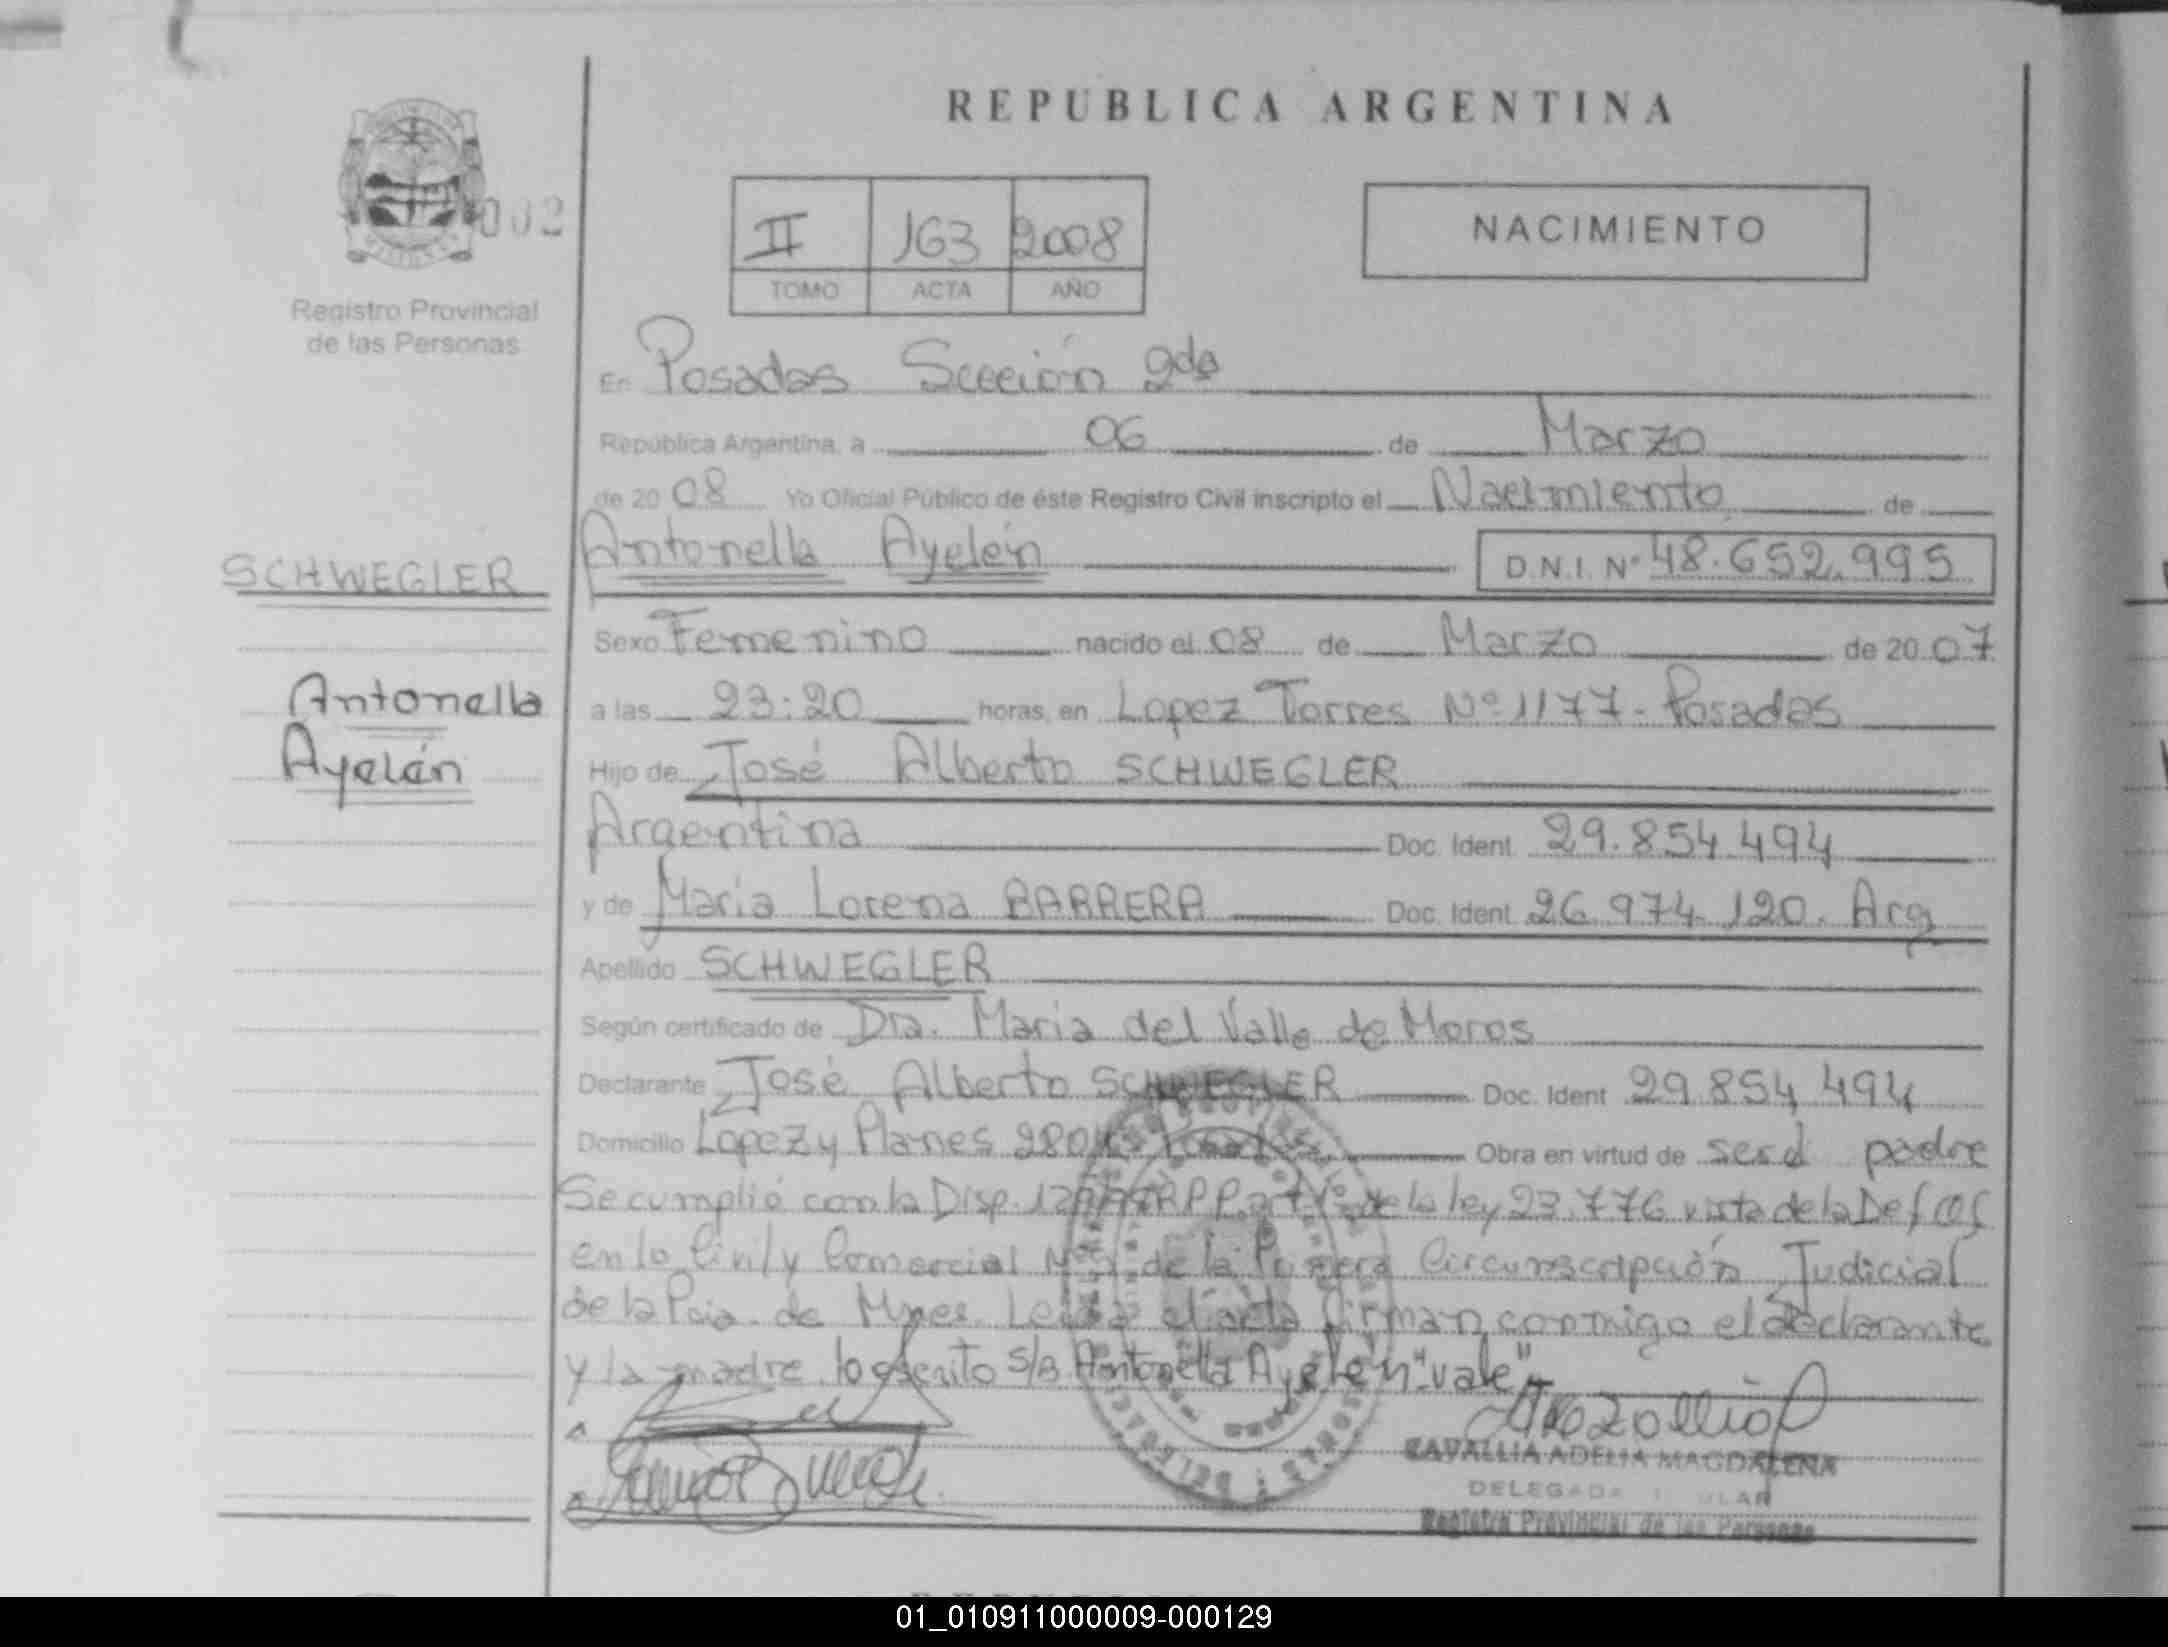 REPUBLICA ARGENTINA
002
Registro Provincial
de las Personas
II 163 2008
TOMO ACTA AÑO
NACIMIENTO
En Posadas Sección 2da
República Argentina, a 06 de Marzo
de 20 08 Yo Oficial Público de éste Registro Civil inscripto el Nacimiento de
SCHWEGLER
Antonella Ayelén D.N.I. Nº 48.652.995
Sexo Femenino nacido el 08 de Marzo de 20 07
Antonella
a las 23:20 horas, en Lopez Torres Nº 1177 - Posadas
Ayelén
Hijo de José Alberto SCHWEGLER
Argentina Doc. Ident. 29.854.494
y de Maria Lorena BARRERA Doc. Ident. 26.974.120. Arg
Apellido SCHWEGLER
Según certificado de Dra. Maria del Valle de Moros
Declarante José Alberto SCHWEGLER Doc. Ident 29.854.494
Domicilio Lopez y Planes Obra en virtud de ser el padre
Se cumplió con la Disp. de la ley 23.776 vista de la Def Of
en lo Civil y Comercial de la Primera Circunscripción Judicial
de la Pcia. de Mnes. Leida el acta firman conmigo el declarante
y la madre lo escrito s/B Antonella Ayelén "vale"
CAVALLIA ADELIA MAGDALENA
DELEGADA
Registro Provincial de las Personas
01_010911000009-000129